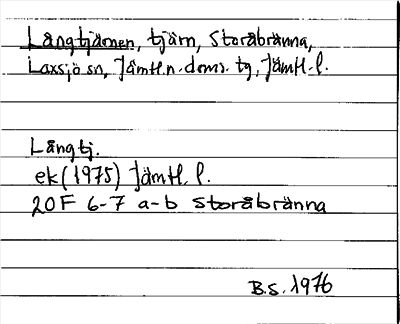 Långtjärnen, tjärn, Storåbränna,
Laxsjö sn, Jämtl.n. doms. tg, Jämtl. l.
Långtj.
ek (1975) Jämtl. l.
20F 6-7 a-b Storåbränna
B.S. 1976